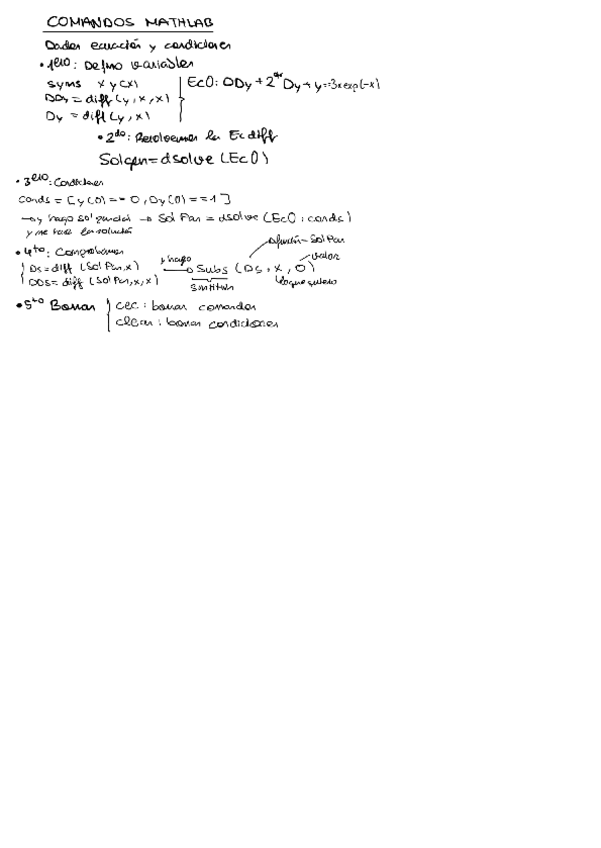 COMANDOS MATHLAB
Dados ecuación y condiciones
• 1ero: Defino variables
syms x y(x)
DDy = diff(y,x,x)
Dy = diff(y,x)
EcO: DDy + 2*Dy + y == 3x exp(-x)
• 2do: Resolvemos la Ec diff
Solgen = dsolve (EcO)
• 3ero: Condiciones
conds = [y(0) == 0, Dy(0) == 1]
→ y hago sol particular → Sol Par = dsolve (EcO; conds)
y me hace la solución
• 4to: Comprobamos
Ds = diff (Sol Par, x)
DDS = diff (Sol Par, x, x)
y hago
→ Subs (Ds, x, 0)
función - Sol Par
valor
sustituir
lo que quiero
• 5to Borrar
clc: borrar comandos
clear: borrar condiciones